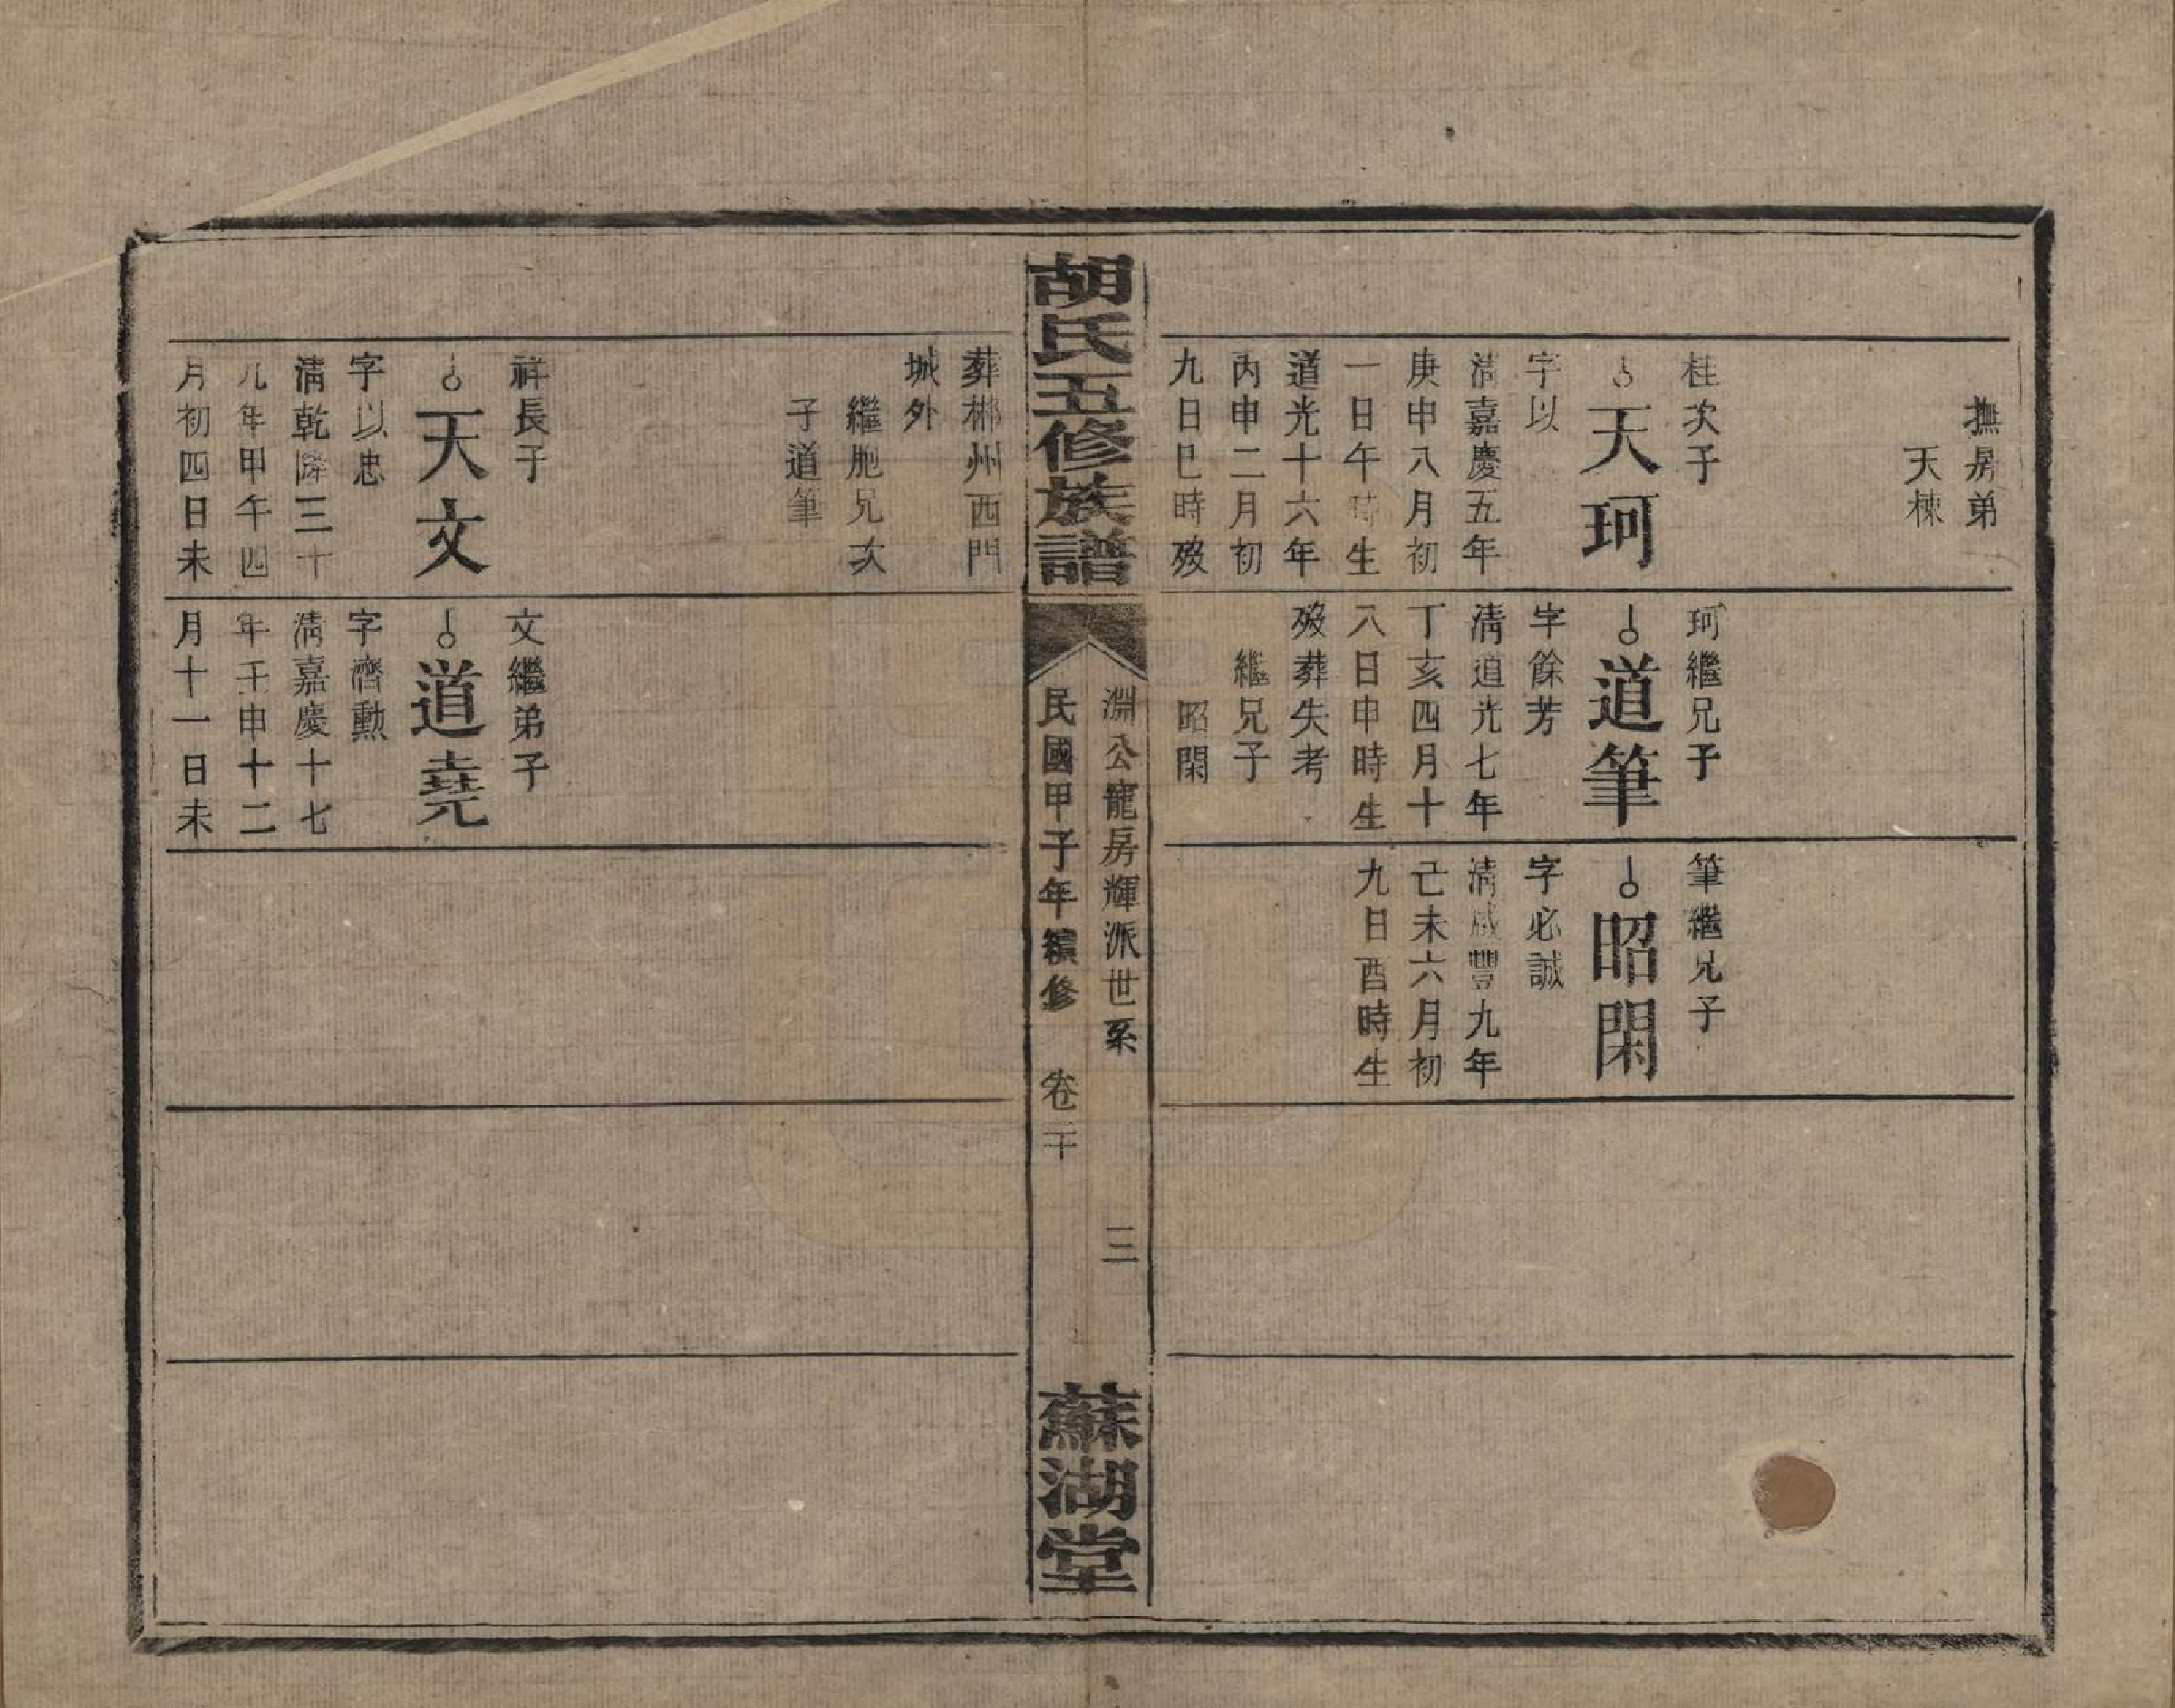 撫房弟
天棟
桂次子
天珂
字以
清嘉慶五年
庚申八月初
一日午時生
道光十六年
丙申二月初
九日巳時歿
珂繼兄子
道筆
字餘芳
清道光七年
丁亥四月十
八日申時生
歿葬失考
繼兄子
昭閑
筆繼兄子
昭閑
字必誠
清咸豐九年
己未六月初
九日酉時生
胡氏五修族譜
淵公寵房輝派世系
三
民國甲子年續修
卷二十
蘇湖堂
葬郴州西門
城外
繼胞兄次
子道筆
祥長子
天文
字以忠
清乾隆三十
九年甲午四
月初四日未
文繼弟子
道堯
字濟勳
清嘉慶十七
年壬申十二
月十一日未